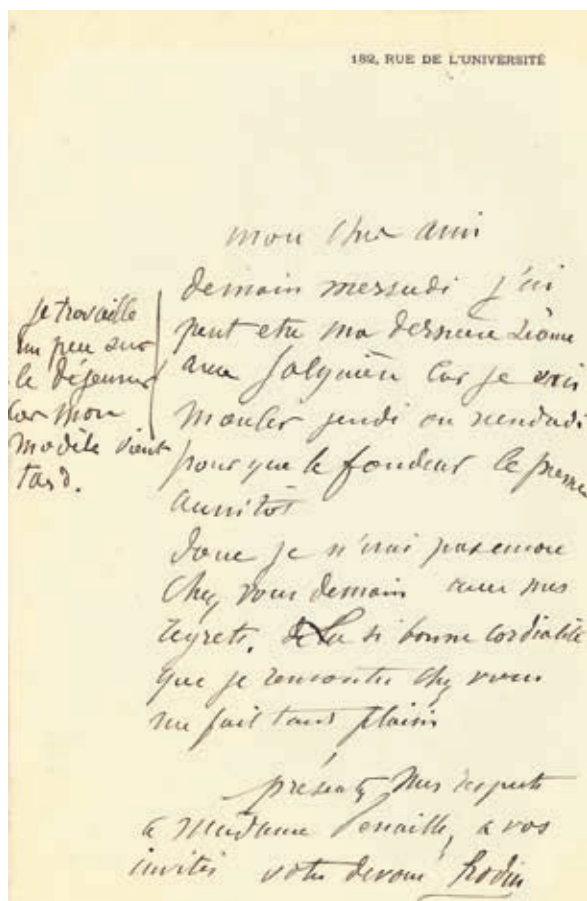 182, RUE DE L'UNIVERSITÉ
mon cher ami
demain mercredi j'ai
peut etre ma derniere séance
avec falguière car je vais
mouler jeudi ou vendredi
pour que le fondeur le prenne
aussitôt
donc je n'irai pas encore
chez vous demain avec mes
regrets. La si bonne cordialité
que je rencontre chez vous
me fait tant plaisir
présentez mes respects
a Madame Fenaille, a vos
invités votre devoué Rodin
je travaille
un peu sur
le déjeuner
car mon
modèle vient
tard.